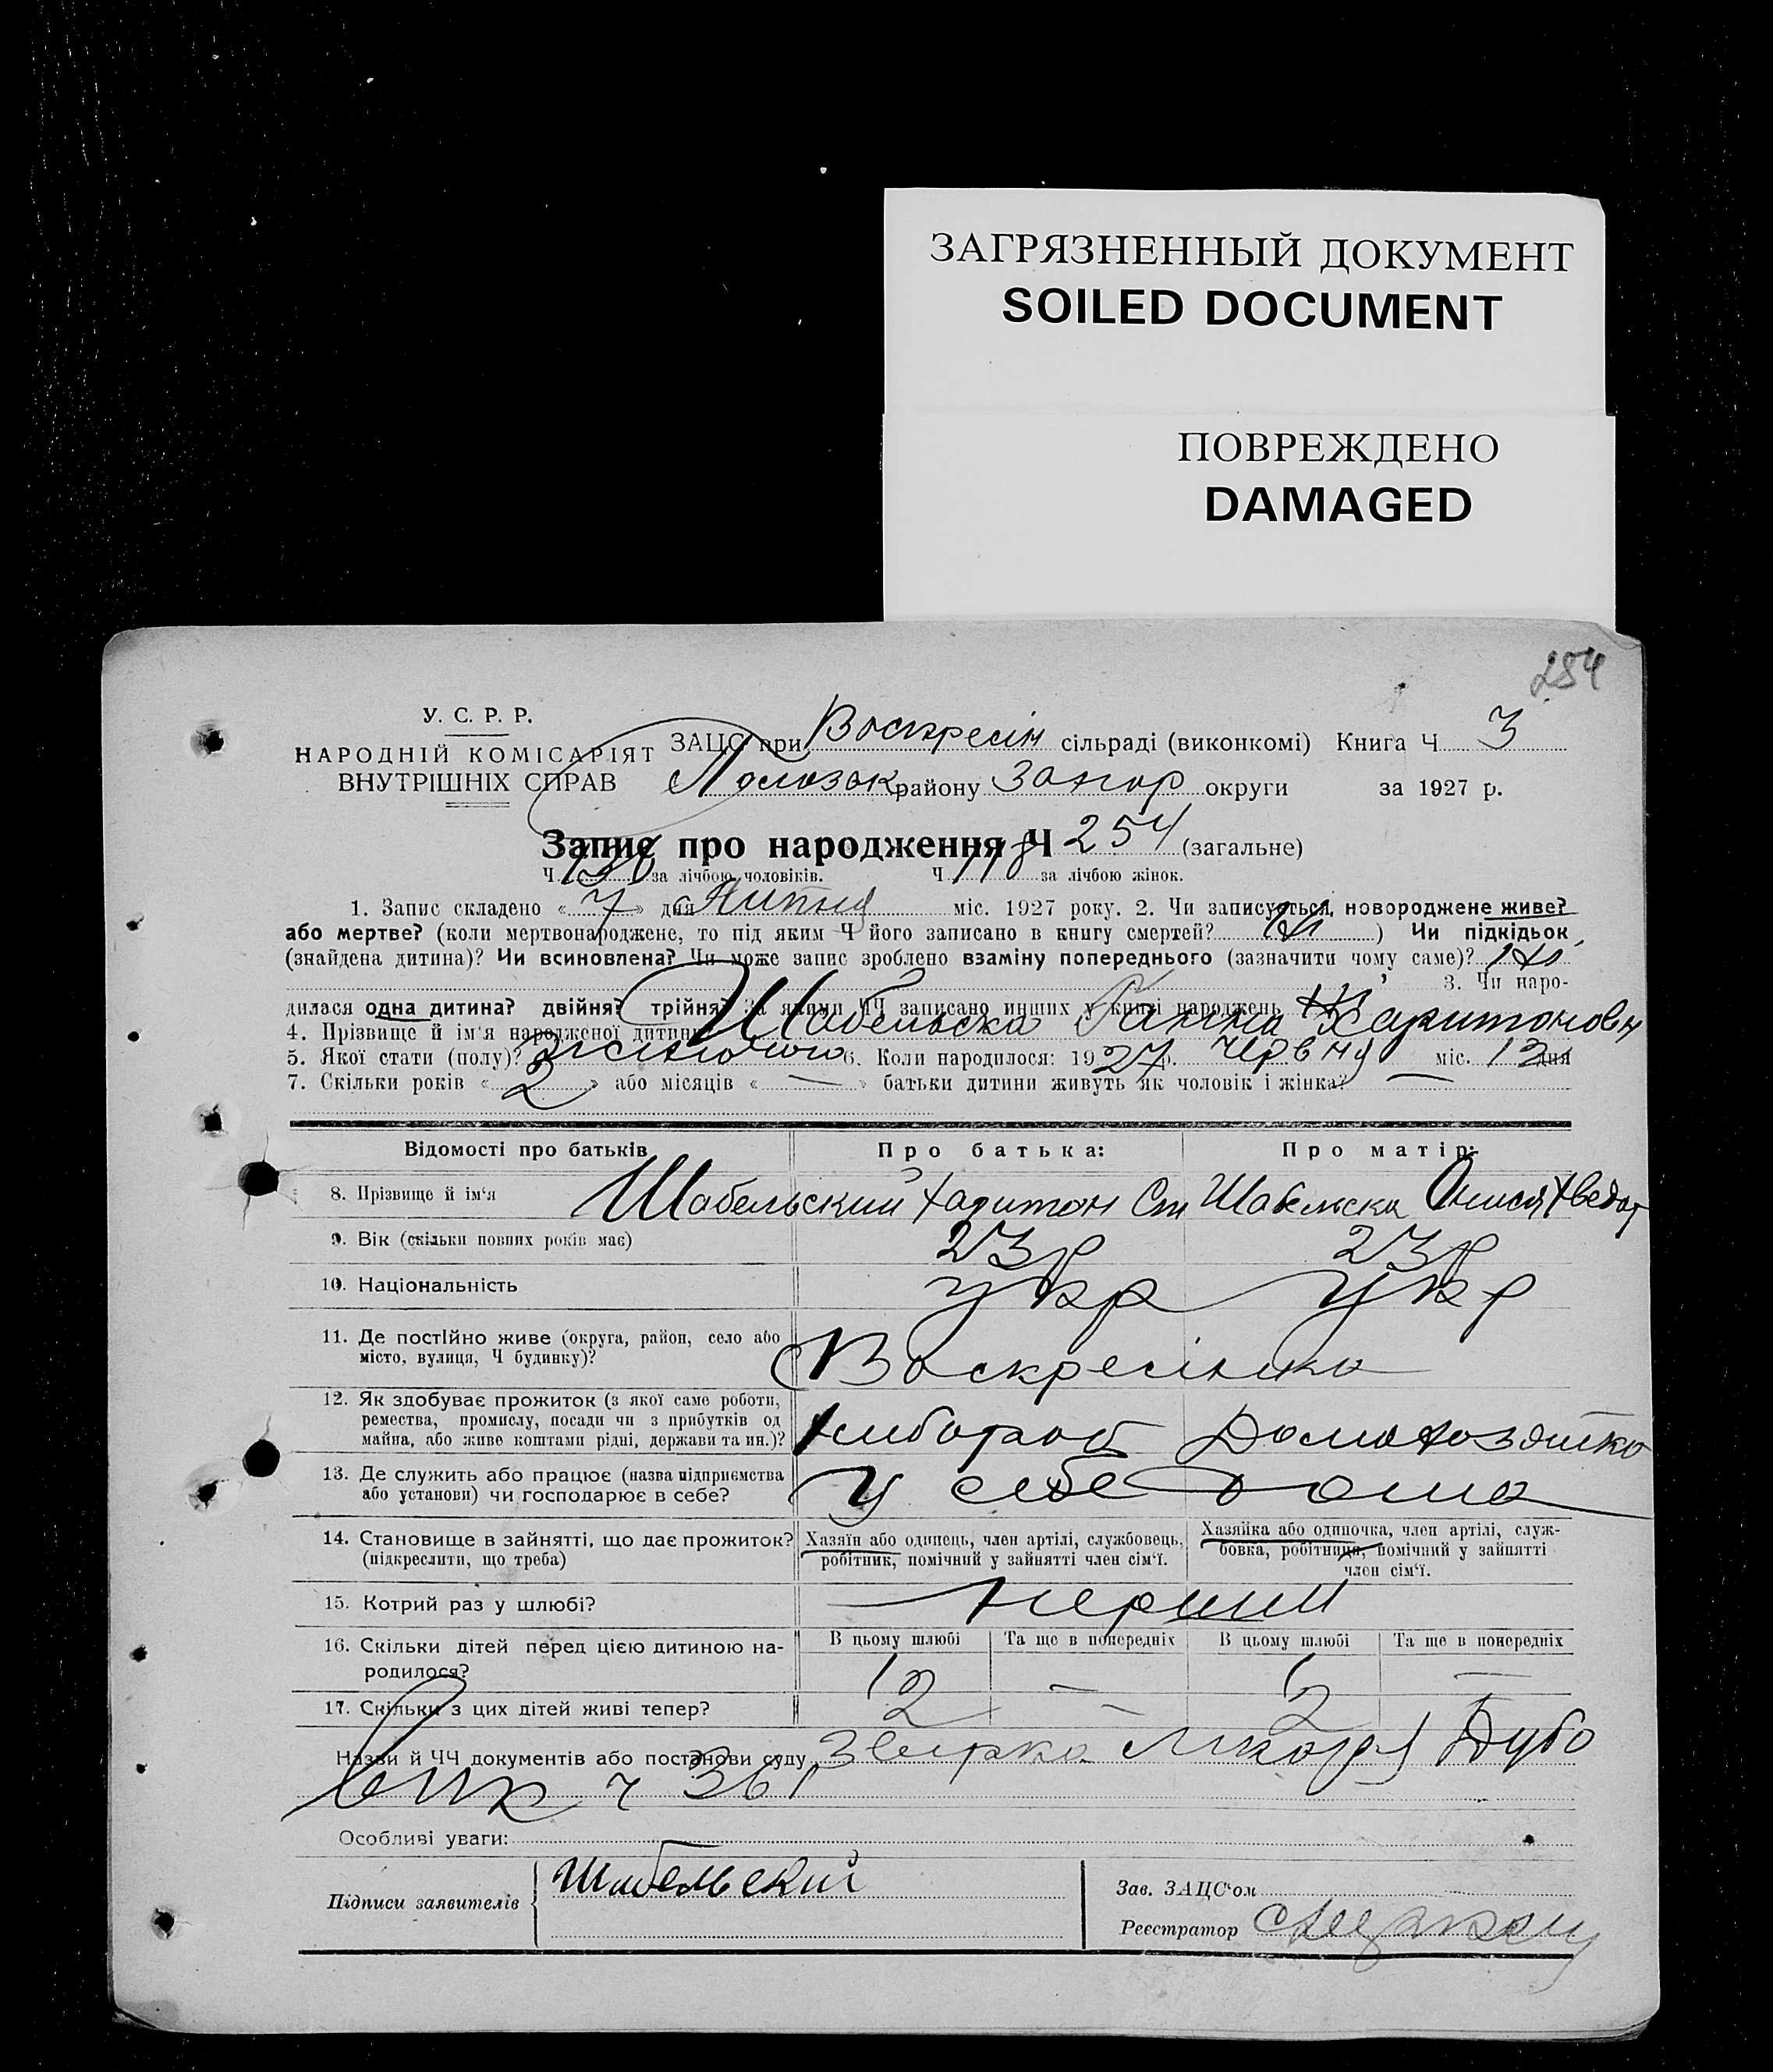 ЗАГРЯЗНЕННЫЙ ДОКУМЕНТ
SOILED DOCUMENT
ПОВРЕЖДЕНО
DAMAGED
254
У. С. Р. Р.
НАРОДНІЙ КОМІСАРІЯТ
ВНУТРІШНІХ СПРАВ
ЗАЦС при Воскресін сільраді (виконкомі) Книга Ч 3
Пологівок району Запор округи за 1927 р.
Запис про народження Ч 254 (загальне)
Ч 136 за лічбою чоловіків. Ч 118 за лічбою жінок.
1. Запис складено « 7 » дня Липня міс. 1927 року. 2. Чи записується, новороджене живе?
або мертве? (коли мертвонароджене, то під яким Ч його записано в книгу смертей? Ні ) Чи підкідьок
(знайдена дитина)? Чи всиновлена? Чи може запис зроблено взаміну попереднього (зазначити чому саме)? Ні
3. Чи наро-
дилася одна дитина? двійня? трійня? За якими ЧЧ записано инших у книзі народжень
4. Прізвище й ім'я народженої дитини Шабельска Ганна Харитоновн
5. Якої стати (полу)? жіночого 6. Коли народилося: 1927 р. червня міс. 13 дня
7. Скільки років « 2 » або місяців « — » батьки дитини живуть як чоловік і жінка? —
Відомості про батьків Про батька: Про матір:
8. Прізвище й ім'я Шабельский Харитон Ст Шабельска Онися Хведот
9. Вік (скільки повних років має) 23 р 23 р
10. Національність укр укр
11. Де постійно живе (округа, район, село або
місто, вулиця, Ч будинку)? Воскресінка
12. Як здобуває прожиток (з якої саме роботи,
ремества, промислу, посади чи з прибутків од
майна, або живе коштами рідні, держави та ин.)? хлібороб Домохозяйка
13. Де служить або працює (назва підприємства
або установи) чи господарює в себе? У себе дома
14. Становище в зайнятті, що дає прожиток?
(підкреслити, що треба)
Хазяїн або одинець, член артілі, службовець,
робітник, помічний у зайнятті член сім'ї.
Хазяйка або одиночка, член артілі, служ-
бовка, робітниця, помічний у зайнятті
член сім'ї.
15. Котрий раз у шлюбі? перший
16. Скільки дітей перед цією дитиною на-
родилося?
В цьому шлюбі Та ще в попередніх В цьому шлюбі Та ще в попередніх
1 — 1 —
17. Скільки з цих дітей живі тепер? 2 — 2
Назви й ЧЧ документів або постанови суду
ч 36
Особливі уваги:
Підписи заявителів Шабельский
Зав. ЗАЦС'ом
Реєстратор